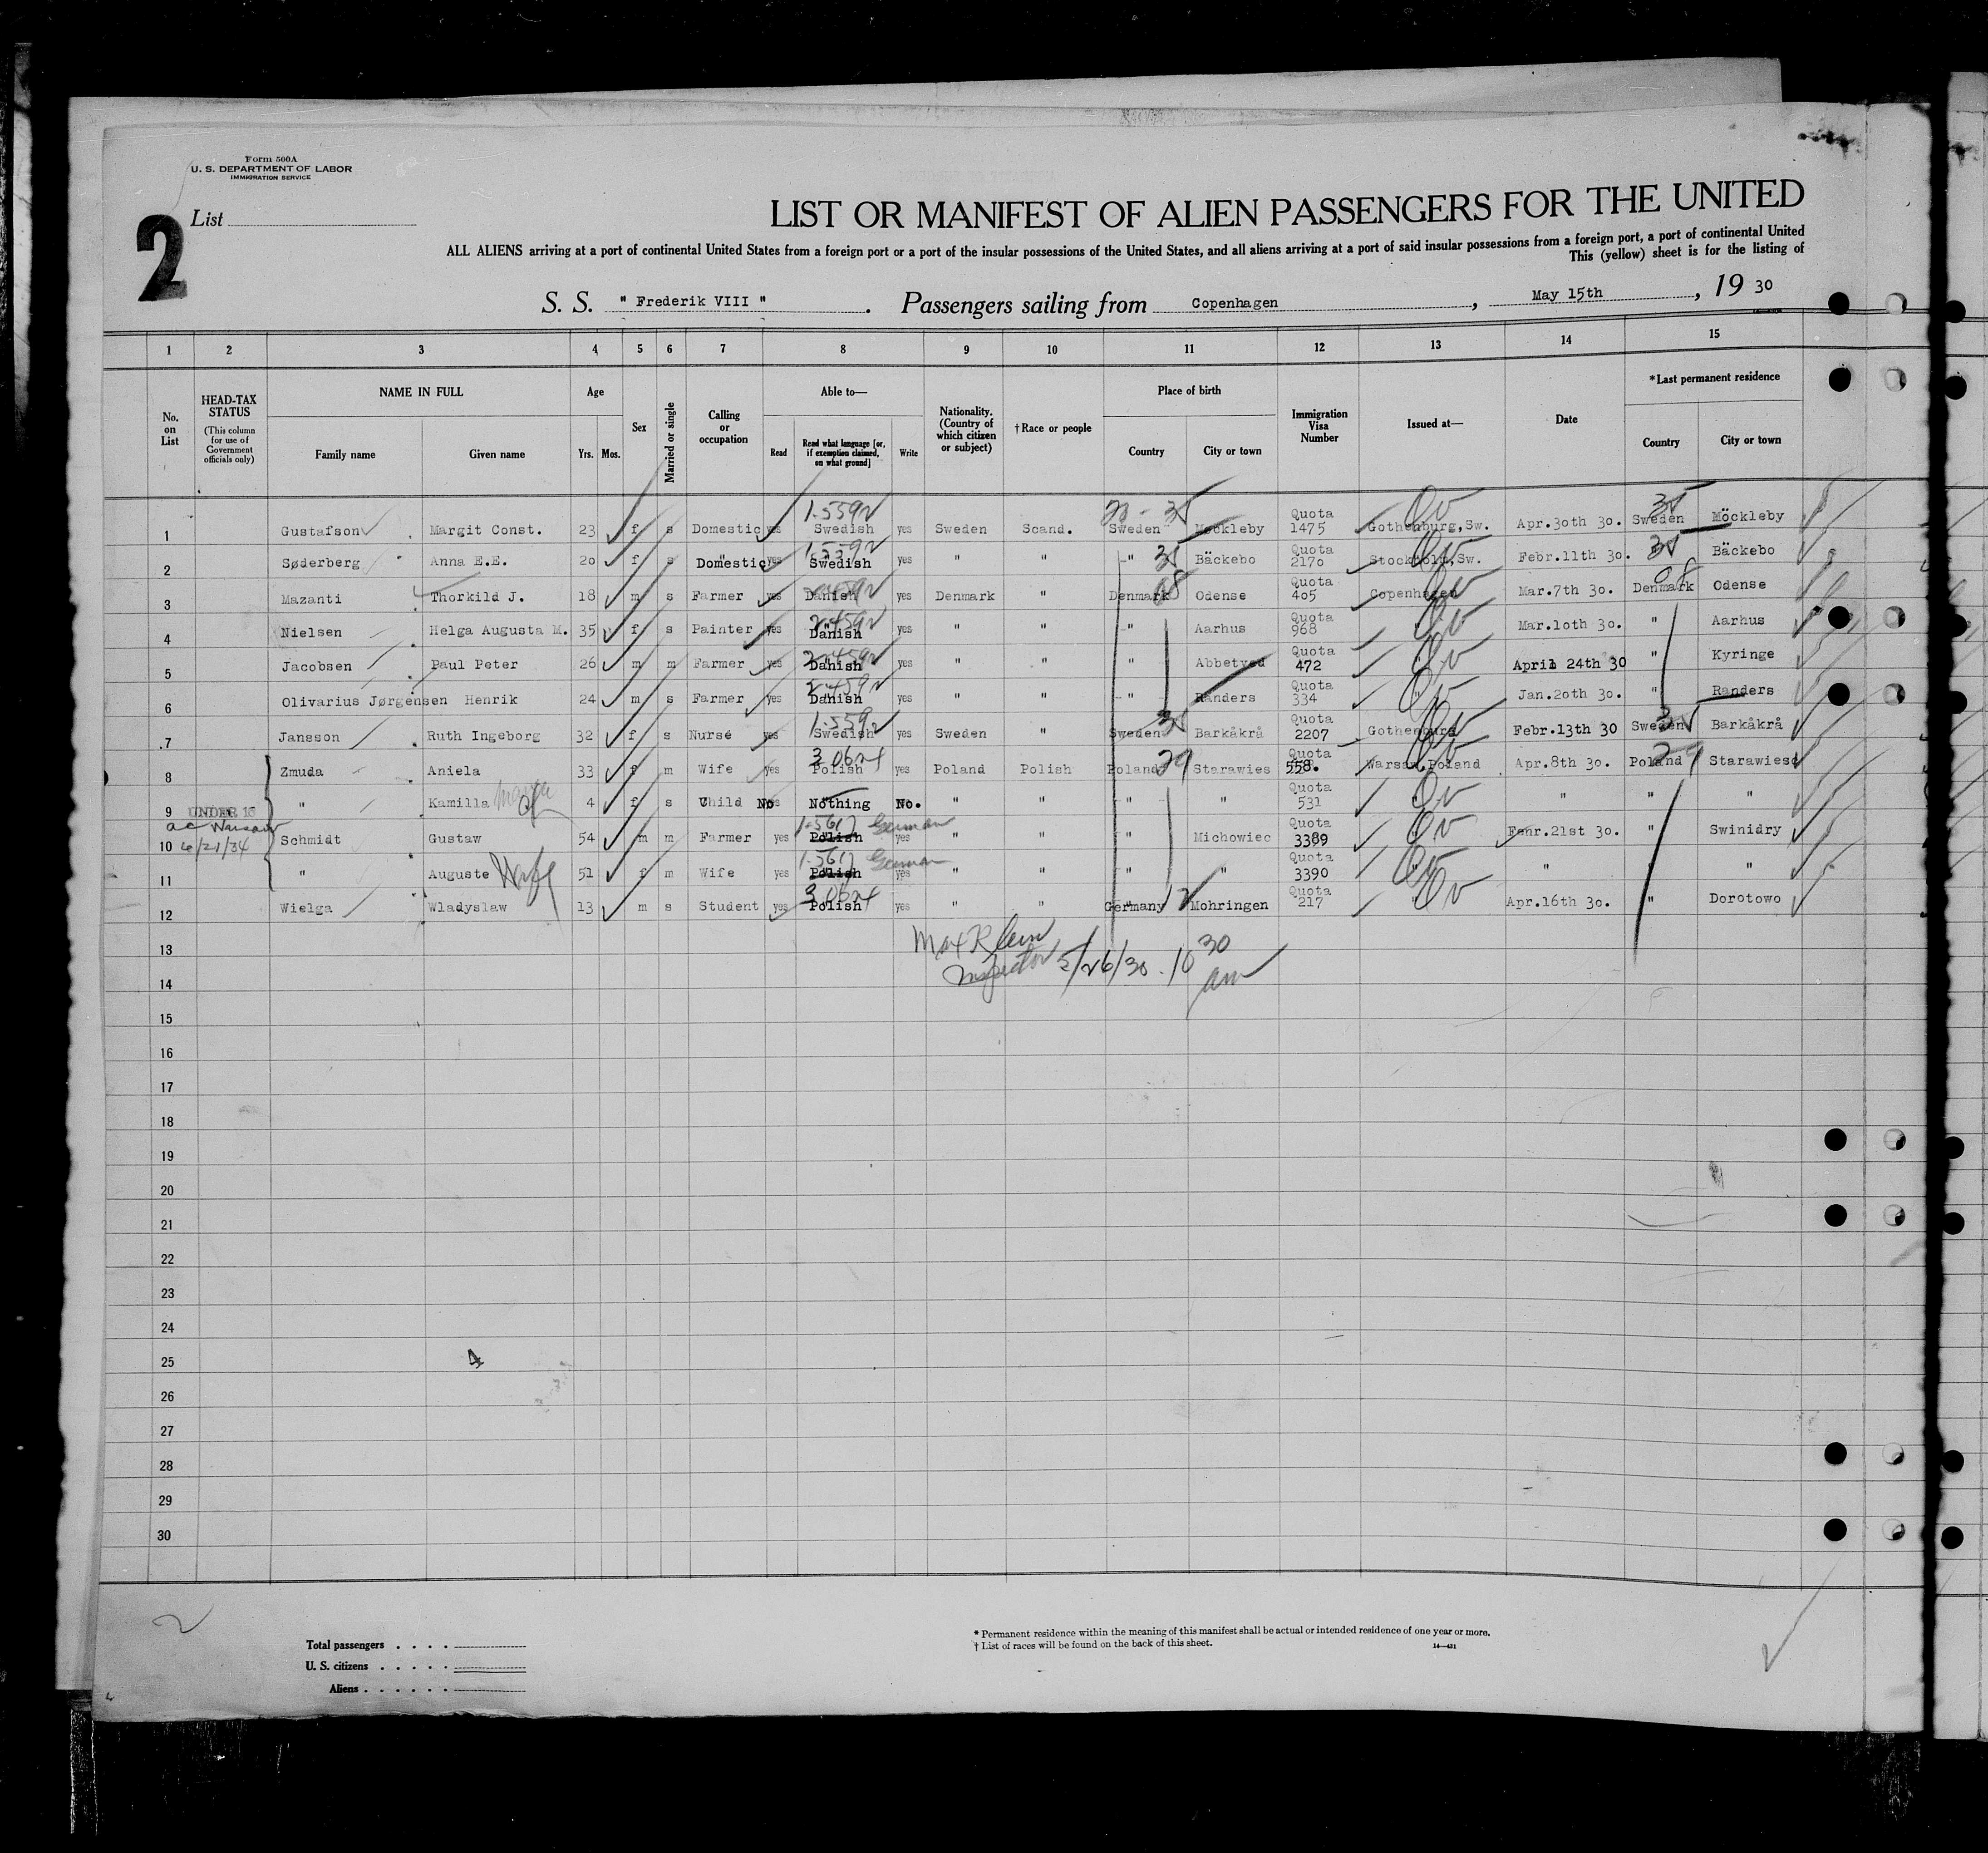 Form 500A
U. S. DEPARTMENT OF LABOR
IMMIGRATION SERVICE
2
List
LIST OR MANIFEST OF ALIEN PASSENGERS FOR THE UNITED
ALL ALIENS arriving at a port of continental United States from a foreign port or a port of the insular possessions of the United States, and all aliens arriving at a port of said insular possessions from a foreign port, a port of continental United
This (yellow) sheet is for the listing of
S. S. " Frederik VIII " . Passengers sailing from Copenhagen , May 15th , 19 30
1 2 3 4 5 6 7 8 9 10 11 12 13 14 15
No. on List
HEAD-TAX STATUS
(This column for use of Government officials only)
NAME IN FULL
Family name Given name
Age
Yrs. Mos.
Sex
Married or single
Calling or occupation
Able to—
Read
Read what language [or, if exemption claimed, on what ground]
Write
Nationality. (Country of which citizen or subject)
†Race or people
Place of birth
Country City or town
Immigration Visa Number
Issued at—
Date
*Last permanent residence
Country City or town
1 Gustafson Margit Const. 23 f s Domestic yes 1-5592 Swedish yes Sweden Scand. Sweden 35 Möckleby Quota 1475 Gothenburg,Sw. Apr.30th 30. Sweden 35 Möckleby
2 Søderberg Anna E.E. 20 f s Domestic yes 1-5592 Swedish yes " " " 35 Bäckebo Quota 2170 Stockholm,Sw. Febr.11th 30. 35 Bäckebo
3 Mazanti Thorkild J. 18 m s Farmer yes Danish yes Denmark " Denmark 08 Odense Quota 405 Copenhagen Mar.7th 30. Denmark 08 Odense
4 Nielsen Helga Augusta M. 35 f s Painter yes Danish yes " " " Aarhus Quota 968 Mar.10th 30. " Aarhus
5 Jacobsen Paul Peter 26 m m Farmer yes Danish yes " " " Abbetved Quota 472 April 24th 30 " Kyringe
6 Olivarius Jørgensen Henrik 24 m s Farmer yes Danish yes " " " Randers Quota 334 Jan.20th 30. " Randers
7 Jansson Ruth Ingeborg 32 f s Nurse yes 1-5592 Swedish yes Sweden " Sweden 35 Barkåkrå Quota 2207 Gothenburg Febr.13th 30 Sweden 35 Barkåkrå
8 Zmuda Aniela 33 f m Wife yes Polish yes Poland Polish Poland 29 Starawies Quota 558. Warsaw,Poland Apr.8th 30. Poland 29 Starawiesc
9 UNDER 16 " Kamilla 4 f s Child No Nothing No. " " " " Quota 531 " " "
Warsaw
10 6/21/34 Schmidt Gustaw 54 m m Farmer yes 1-561 Polish German yes " " " Michowiec Quota 3389 Febr.21st 30. " Swinidry
11 " Auguste Wife 51 f m Wife yes 1-561 Polish German yes " " " " Quota 3390 " " "
12 Wielga Wladyslaw 13 m s Student yes Polish yes " " Germany 12 Mohringen Quota 217 Apr.16th 30. " Dorotowo
13
Inspector 5/26/30 . 10 30 am
14
15
16
17
18
19
20
21
22
23
24
25 4
26
27
28
29
30
2
Total passengers . . . .
U. S. citizens . . . . .
Aliens . . . . . .
* Permanent residence within the meaning of this manifest shall be actual or intended residence of one year or more.
† List of races will be found on the back of this sheet.
14—431